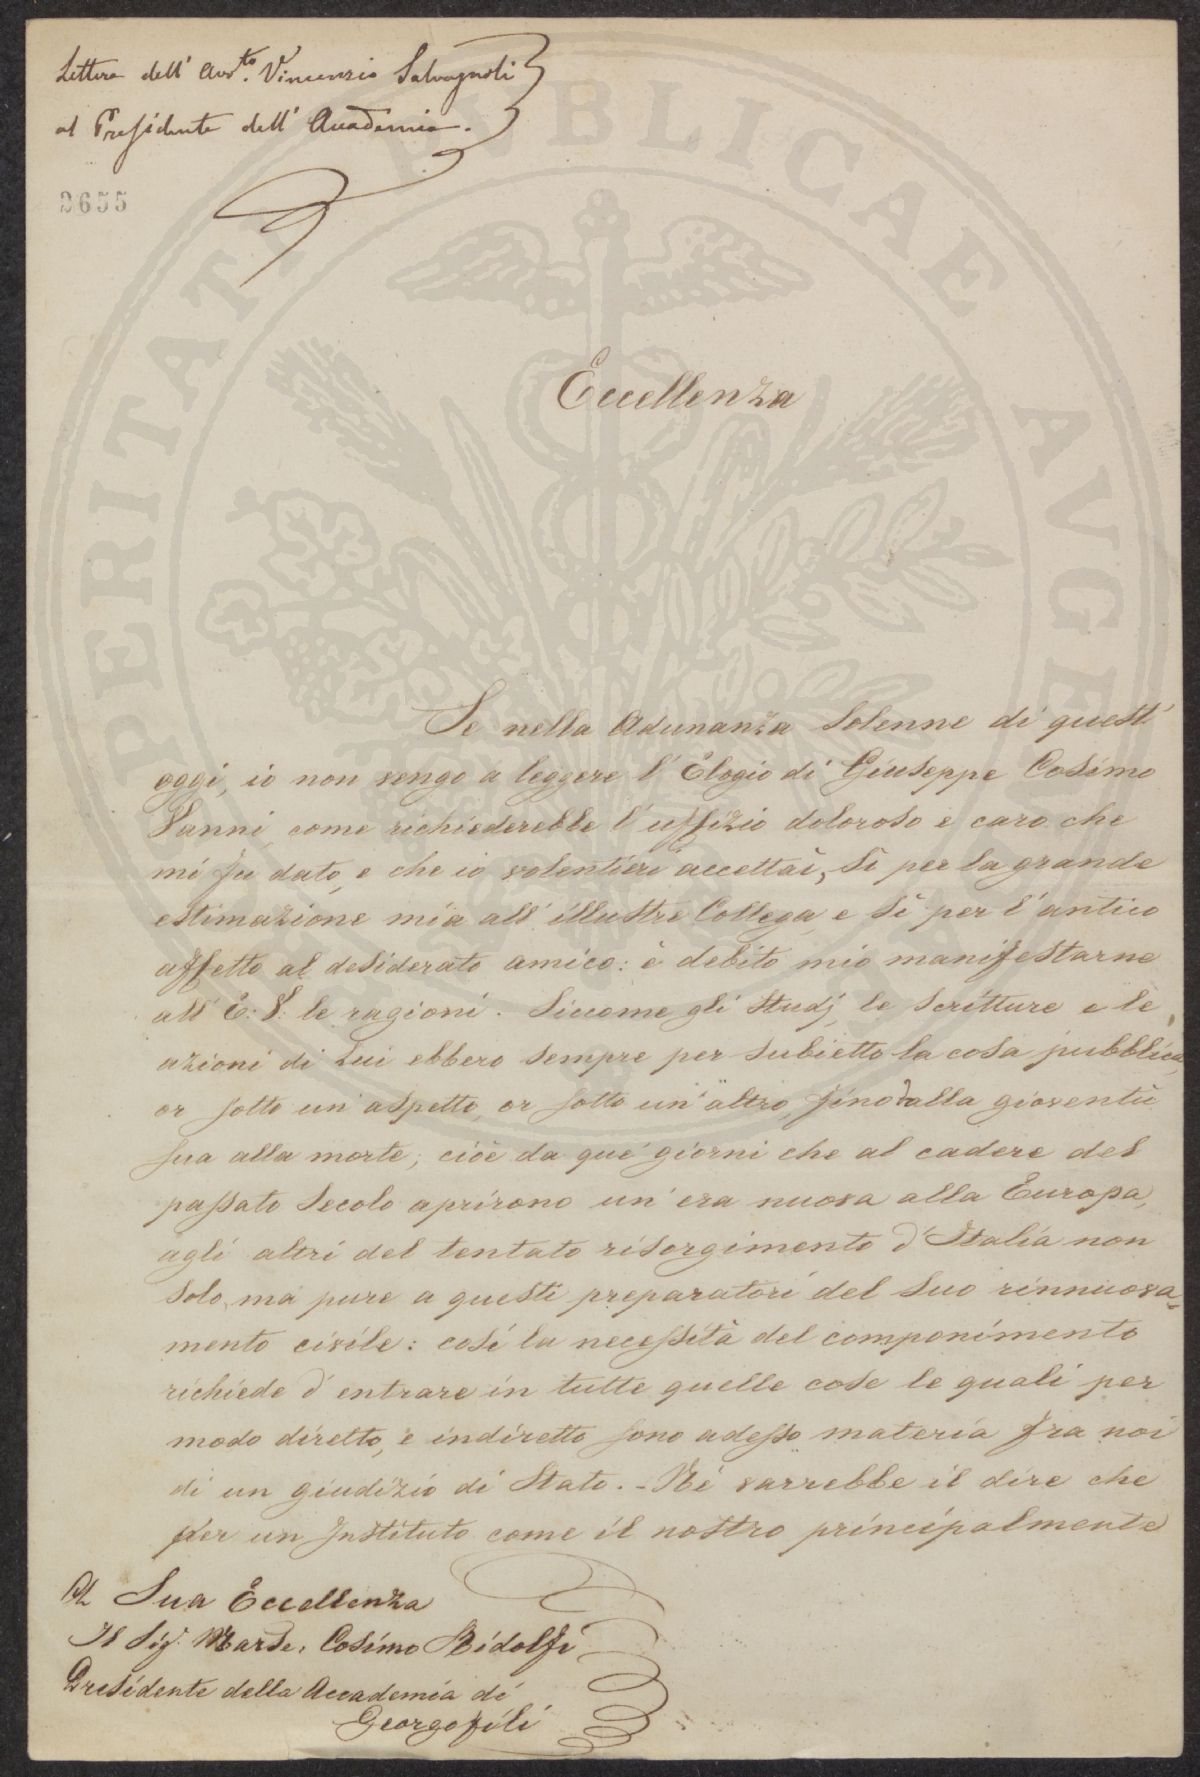 Lettera dell' Avv.to Vincenzio Salvagnoli
al Presidente dell' Accademia.
3655
PROSPERITATI PVBLICAE AVGENDAE
Eccellenza
Se nella Adunanza Solenne di quest'
oggi, io non vengo a leggere l'Elogio di Giuseppe Cosimo
Vanni, come richiederebbe l'uffizio doloroso e caro che
mi fu dato, e che io volentieri accettai, Sì per la grande
estimazione mia all' illustre Collega, e Sì per l'antico
affetto al desiderato amico: è debito mio manifestarne
all' E: V: le ragioni. Siccome gli Studj, le Scritture e le
azioni di Lui ebbero Sempre per Subietto la cosa pubblica,
or sotto un' aspetto, or sotto un' altro, fino dalla gioventù
sua alla morte; cioè da que' giorni che al cadere del
passato Secolo aprirono un' era nuova alla Europa,
agli altri del tentato risorgimento d'Italia non
Solo, ma pure a questi preparatori del Suo rinnuova=
mento civile: così la necessità del componimento
richiede d'entrare in tutte quelle cose le quali per
modo diretto, e indiretto sono adesso materia fra noi
di un giudizio di Stato. - Nè varrebbe il dire che
per un Instituto come il nostro principalmente
A Sua Eccellenza
Il Sig.r Marse. Cosimo Ridolfi
Presidente della Accademia dei
Georgofili